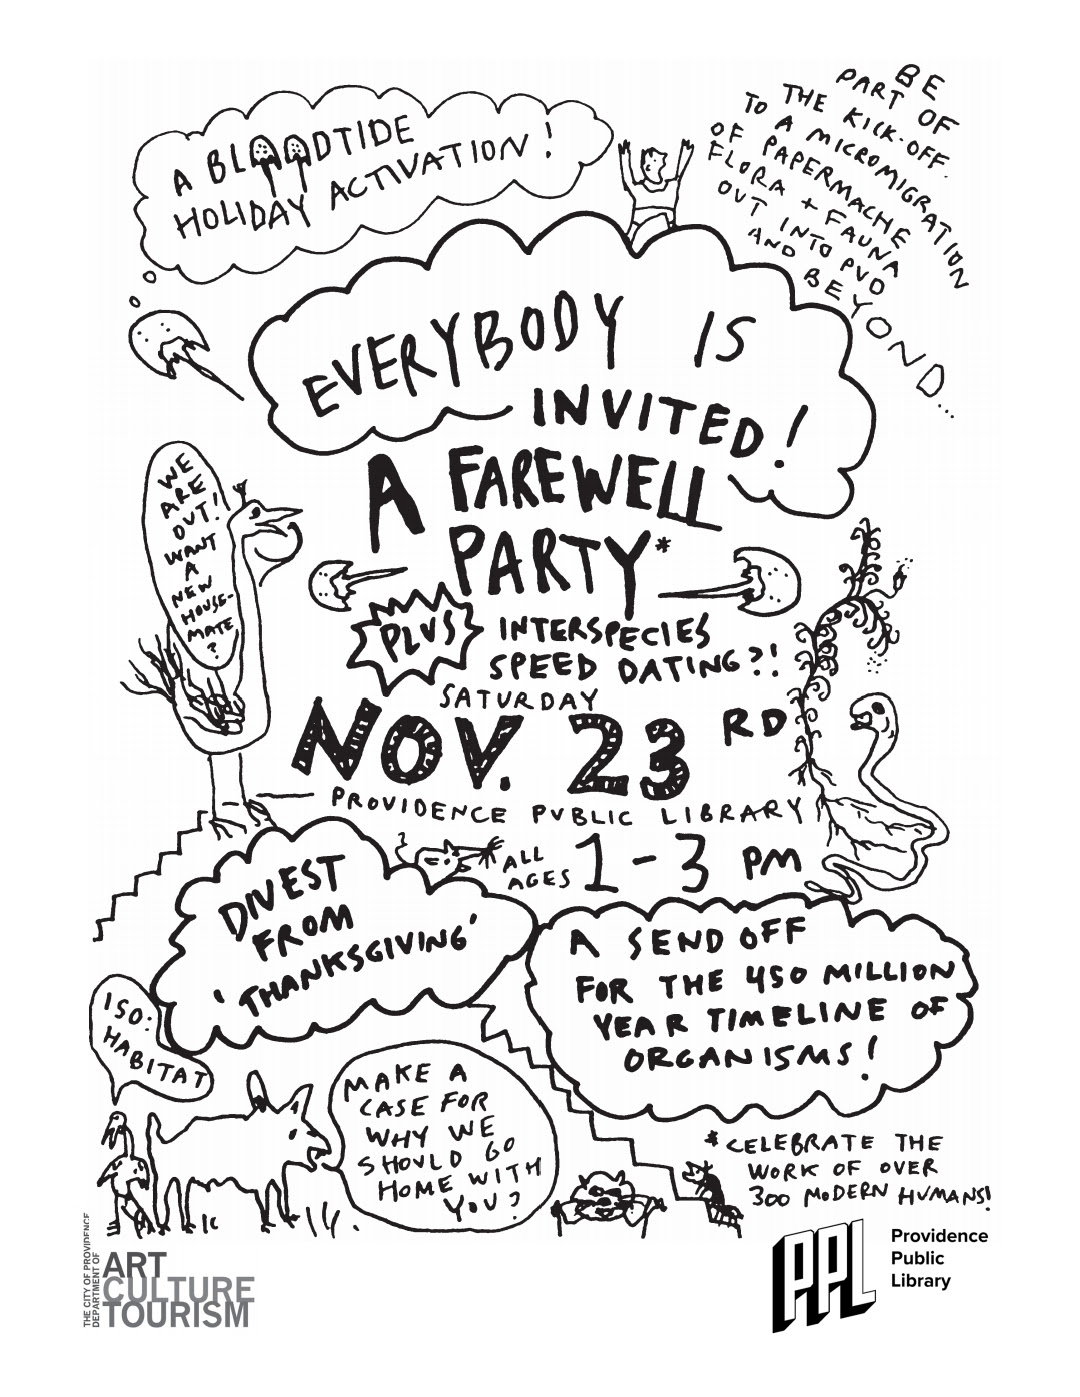 A BLOODTIDE
HOLIDAY ACTIVATION!
BE
PART OF
THE KICK-OFF
TO A MICROMIGRATION
OF PAPERMACHE
FLORA + FAUNA
OUT INTO PVD
AND BEYOND...
EVERYBODY IS
INVITED!
A FAREWELL
PARTY*
WE
ARE
OUT!
WANT
A
NEW
HOUSE-
MATE
?
PLUS
INTERSPECIES
SPEED DATING?!
SATURDAY
NOV. 23RD
PROVIDENCE PUBLIC LIBRARY
ALL
AGES
1-3 PM
DIVEST
FROM
'THANKSGIVING'
A SEND OFF
FOR THE 450 MILLION
YEAR TIMELINE OF
ORGANISMS!
ISO:
HABITAT
MAKE A
CASE FOR
WHY WE
SHOULD GO
HOME WITH
YOU?
*CELEBRATE THE
WORK OF OVER
300 MODERN HUMANS!
THE CITY OF PROVIDENCE
DEPARTMENT OF
ART
CULTURE
TOURISM
PPL
Providence
Public
Library